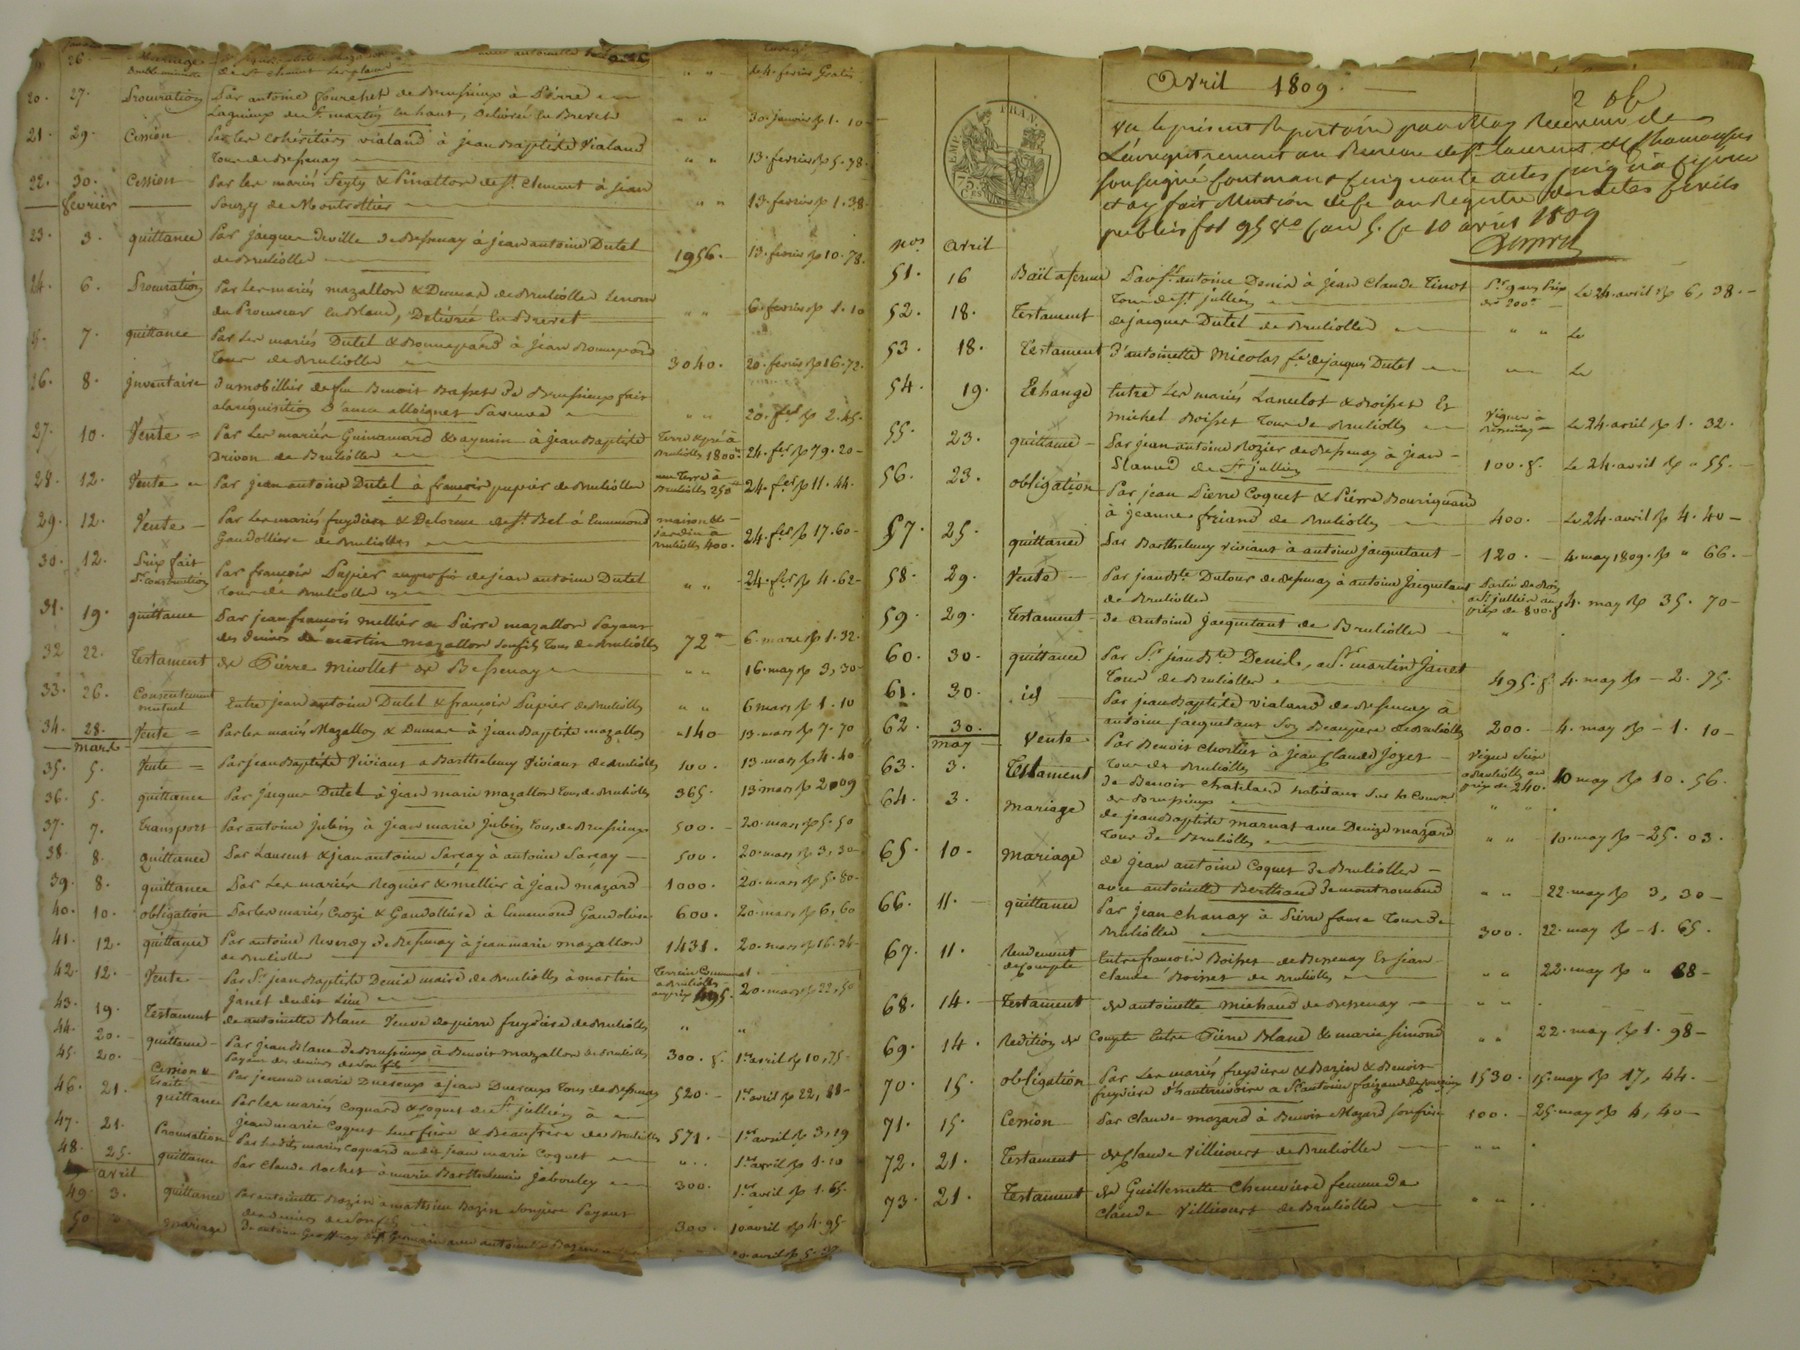 26. Mariage
avec antoinette
de St Clément les places
de 4. fevrier Gratis
20. 27. Procuration Par antoine fourchet de Brussieux à Pierre
Lagnieux de St. martin en haut, délivrée en Brevet " " 30. janvier 1. 10
21. 29. Cession Par les cohéritiers vialand à jean Baptiste Vialand
tous de Bessenay " " 13. fevrier 5. 78.
22. 30. Cession Par les mariés Seyty & Pinatton de St. Clement à jean
fevrier Souzy de Montrottier " " 13. fevrier 1. 38.
23. 3. quittance Par jacques Deville de Bessenay à jean antoine Dutel
de Brulioles 1956. 13. fevrier 10. 78.
24. 6. Procuration Par les mariés mazallon & Dumas de Brulioles le nom
du Procureur en Blanc, Delivrée En Brevet " " 6. fevrier 1. 10
7. quittance Par Les mariés Dutel & Bonnepard à Jean Bonnepard
tous de Brulioles 3040. 20. fevrier 16. 72.
26. 8. inventaire du mobillier de feu Benoit Basset de Brussieux fait
a la requisition d'anne alloignet sa veuve " " 20. fer 2. 45.
27. 10. Vente = Par Les mariés Guinamard & aymin à jean Baptiste Terre & pré à
Drivon de Brulioles Brulioles 1800 24. fer 79. 20
28. 12. Vente Par jean antoine Dutel à françois pupier de Brulioles une Terre à Brulioles 250 24. fer 11. 44.
29. 12. Vente Par Les mariés freydiere & Delorme de St. Bel à Ennemond maison &
Gaudolliere de Brulioles jardin à Brulioles 400. 24. fer 17. 60
30. 12. Prix fait Par françois Pupier au profit de jean antoine Dutel
Pr. construction tous de Brulioles " " 24. fer 4. 62
31. 19. quittance Par jean françois mellier à Pierre mazallon Payant
des deniers de martin mazallon son fils tous de Brulioles 72 6. mars 1. 32.
32 22. Testament de Pierre Miollet de Bessenay " " 16. may 3, 30
33. 26. Consentement mutuel Entre jean antoine Dutel & françois Pupier de Brulioles " " 6 mars 1. 10
34. 28. Vente = Par les mariés Mazallon & Dumas à jean Baptiste mazallon 140 13. mars 7. 70
mars
35. 5. Vente = Par jean Baptiste Viviant à Barthelemy Viviant de Brulioles 100. 13 mars 4. 40
36. 5. quittance Par jacques Dutel à jean marie mazallon tous de Brulioles 365. 13 mars 2. 09
37. 7. transport Par antoine jubin à jean marie jubin tous de Brussieux 500. 20. mars 5. 50
38. 8. quittance Par Laurent & jean antoine Sarcay à antoine Sarcay 500. 20. mars 3, 30
39. 8. quittance Par Les mariés Regnier & mellier à Jean mazard 1000. 20. mars 5. 80
40. 10. obligation Par les mariés Crozi & Gaudolliere à Ennemond Gaudoliere 600. 20. mars 6, 60
41. 12. quittance Par antoine Reverdy de Bessenay à jean marie mazallon
de Brulioles 1431. 20. mars 16. 34
42. 12. Vente Par Sr. jean Baptiste Denis maire de Brulioles à martin Terrein Communal
janet dudit Lieu a Brulioles au prix 495. 20. mars 22, 50
43. 19. Testament de antoinette Blanc Veuve de pierre freydiere de Brulioles " "
44. 20. quittance Par jean Blanc de Brussieux à Benoit mazallon de Brulioles
45. 20. Payant des deniers de son fils 300. 1er avril 10, 75
Cession & traité Par jeanne marie Ducreux à jean Ducreux tous de Bessenay 520. 1er avril 22, 88
46. 21. quittance Par les mariés Coquard & Coquet de St. jullien à
jean marie Coquet leur frère & Beaufrère de Brulioles 571. 1er avril 3, 19
47. 21. Procuration Par lesdits mariés Coquard audit jean marie Coquet " . . 1er avril 1. 10
48. 25. quittance Par Claude Rochet à marie Barthelemie Jabouley 300. 1er avril 1. 65.
avril
49. 3. quittance Par antoinette Bazin à mathieu Bazin son père Payant
des deniers de son fils 300. 10 avril 4. 95
50 mariage de antoine avec antoinette Bazin avril 5. 37
Avril 1809.
2
Vu le présent Repertoire par Moy Receveur de
L'enregistrement au Bureau de St. laurent de Chamousset
soussigné contenant cinquante actes jusqu'à ce jour
et ay fait Mention de ce au Registre des actes civils
publics fol 95 Vo Case 5. Ce 10 avril 1809
TIMB FRAN 75
nos avril
51. 16 Bail a ferme Par Sr antoine Denis à jean Claude Tinot Pr 9 ans Prix
tous de St. jullien de 200 Le 24 avril 6, 38.
52. 18. Testament de jacques Dutel de Brulioles " " Le
53. 18. Testament d'antoinette Micolas fe de jacques Dutel Le
54. 19. Echange Entre Les mariés Lancelot & Boisset Et
michel Boisset tous de Brulioles Vignes à Bessenay Le 24. avril 1. 32.
55. 23. quittance Par jean antoine Rozier de Bessenay à jean
de St jullien 100. f. Le 24 avril " 55.
56. 23. obligation Par jean Pierre Coquet & Pierre Bourignard
à jeanne friand de Brulioles 400. Le 24. avril 4. 40
57. 25. quittance Par Barthelemy Viviant à antoine jacquetant 120. 4. may 1809. " 66.
58. 29. Vente Par jean Bte Dutour de Bessenay à antoine jacquetant Partie de Bois
de Brulioles a St jullien au prix de 800. f 4. may 35. 70
59. 29. Testament de antoine jacquetant de Brulioles " .
60. 30. quittance Par Sr. jean Bte Denis, a Sr. martin Janet
tous de Brulioles 495. f 4. may 2. 75.
61. 30. id Par jean Baptiste vialand de Bessenay à
antoine jacquetant son Beaupère de Brulioles 200. 4. may 1. 10
62. 30. Vente Par Benoit Chorlier à jean Claude Joyet Vigne Prix
may tous de Brulioles a Brulioles au prix de 240. 10 may 10. 56.
63. 3. Testament de Benoit Chatelard notaire
de Brussieux " " .
64. 3. mariage de jean Baptiste marnat avec Denize mazard
tous de Brulioles " " 10. may 25. 03.
65. 10. mariage de jean antoine Coquet de Brulioles
avec antoinette Berthaud de montromand " " 22. may 3, 30
66. 11. quittance Par jean Charray à Pierre faure tous de
Brulioles 300. 22. may 1. 65.
67. 11. Rendement de Compte Entre françois Boisset de Bessenay Et jean
Claude Boisset de Brulioles " " 22. may " 88
68. 14. Testament de antoinette michaud de Bessenay " " .
69. 14. Redition de Compte Entre Pierre Blanc & marie Simond " " 22. may 1. 98
70. 15. obligation Par Les mariés freydiere & Bazin & Benoit
freydiere d'hauterivoire a St antoine 1530. 15. may 17, 44.
71. 15. Cession Par Claude mazard à Benoit Mazard son frère 100. 25. may 4, 40
72. 21. Testament de Claude Villecourt de Brulioles " " .
73. 21. Testament de Guillemette Cheneviere femme de
Claude Villecourt de Brulioles " " .